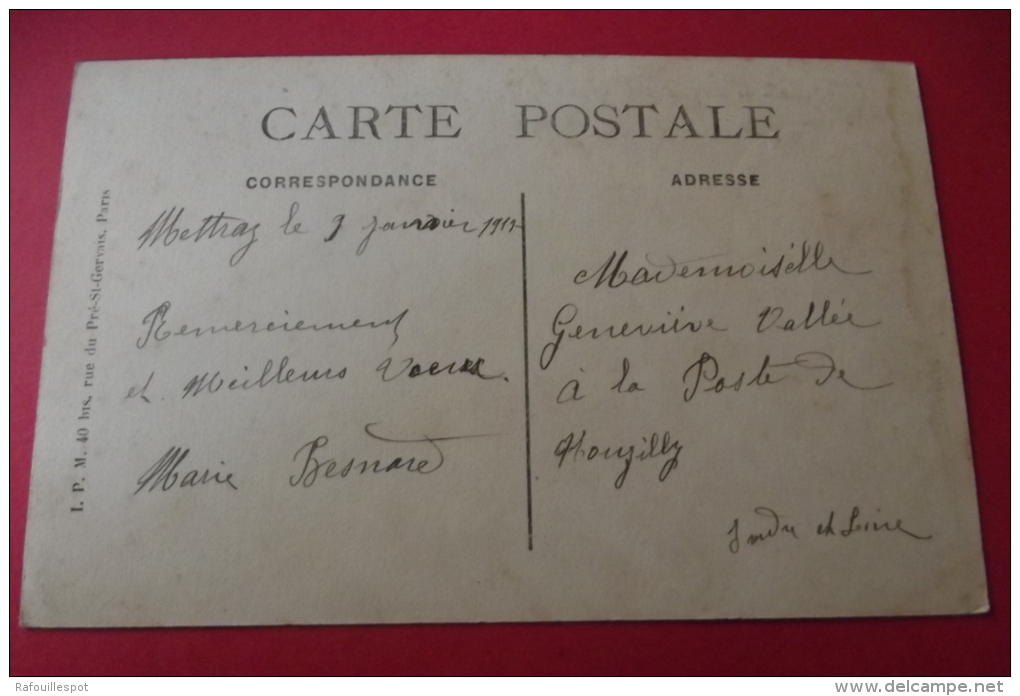 CARTE POSTALE
CORRESPONDANCE
Mettray le 9 janvier
Remerciement
et Meilleurs Voeux.
Marie Besnard
ADRESSE
Mademoiselle
Geneviève Vallée
à la Poste de
Nouzilly
Indre et Loire
I. P. M. 40 bis, rue du Pré-St-Gervais, Paris
Rafouillespot
www.delcampe.net